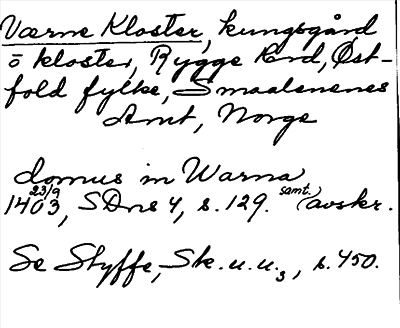 Værne Kloster, kungsgård
o kloster, Rygge hrd, Øst-
fold fylke, Smaalenenes
Amt, Norge
domus in Warna
1403 23/9, SDns 4, s. 129. (samt.) avskr.
Se Styffe, Sk. u. u. 3, s. 450.